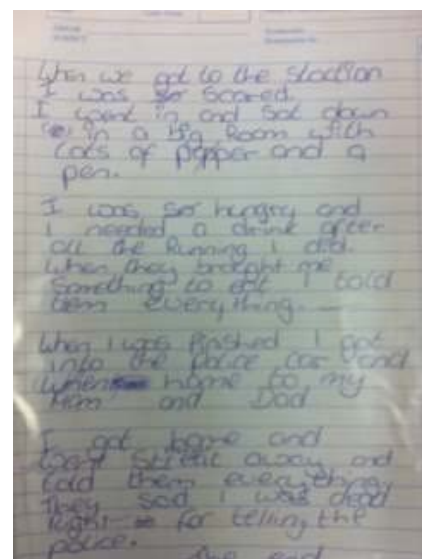 When we got to the staction
I was so scared.
I went in and sat down
in a big Room with
Lots of papper and a
pen.
I was so hungry and
I needed a drink after
all the Running I did.
When they brought me
something to eat I told
them everything.
When I was finished I got
into the police car and
when home to my
Mam and Dad
I got home and
went streit away and
told them everything
They said I was dead
Right for telling the
police.
The end